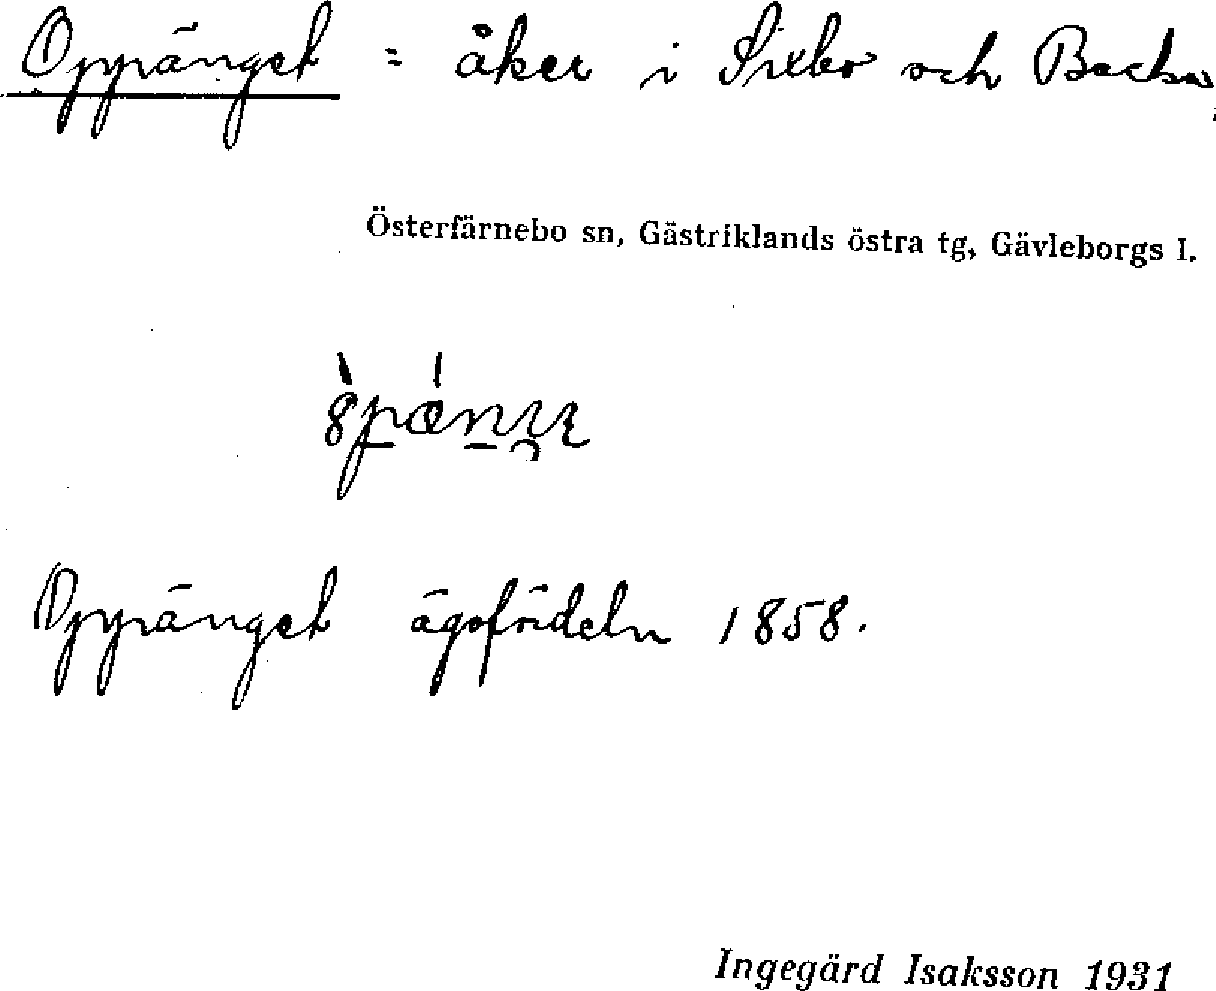 Oppänget = åker i Sixbo och Backa
Österfärnebo sn, Gästriklands östra tg, Gävleborgs l.
Oppänget ägofördeln 1858.
Ingegärd Isaksson 1931